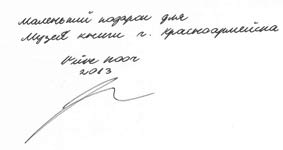 Маленький подарок для
Музея книги г. Красноармейска
2013